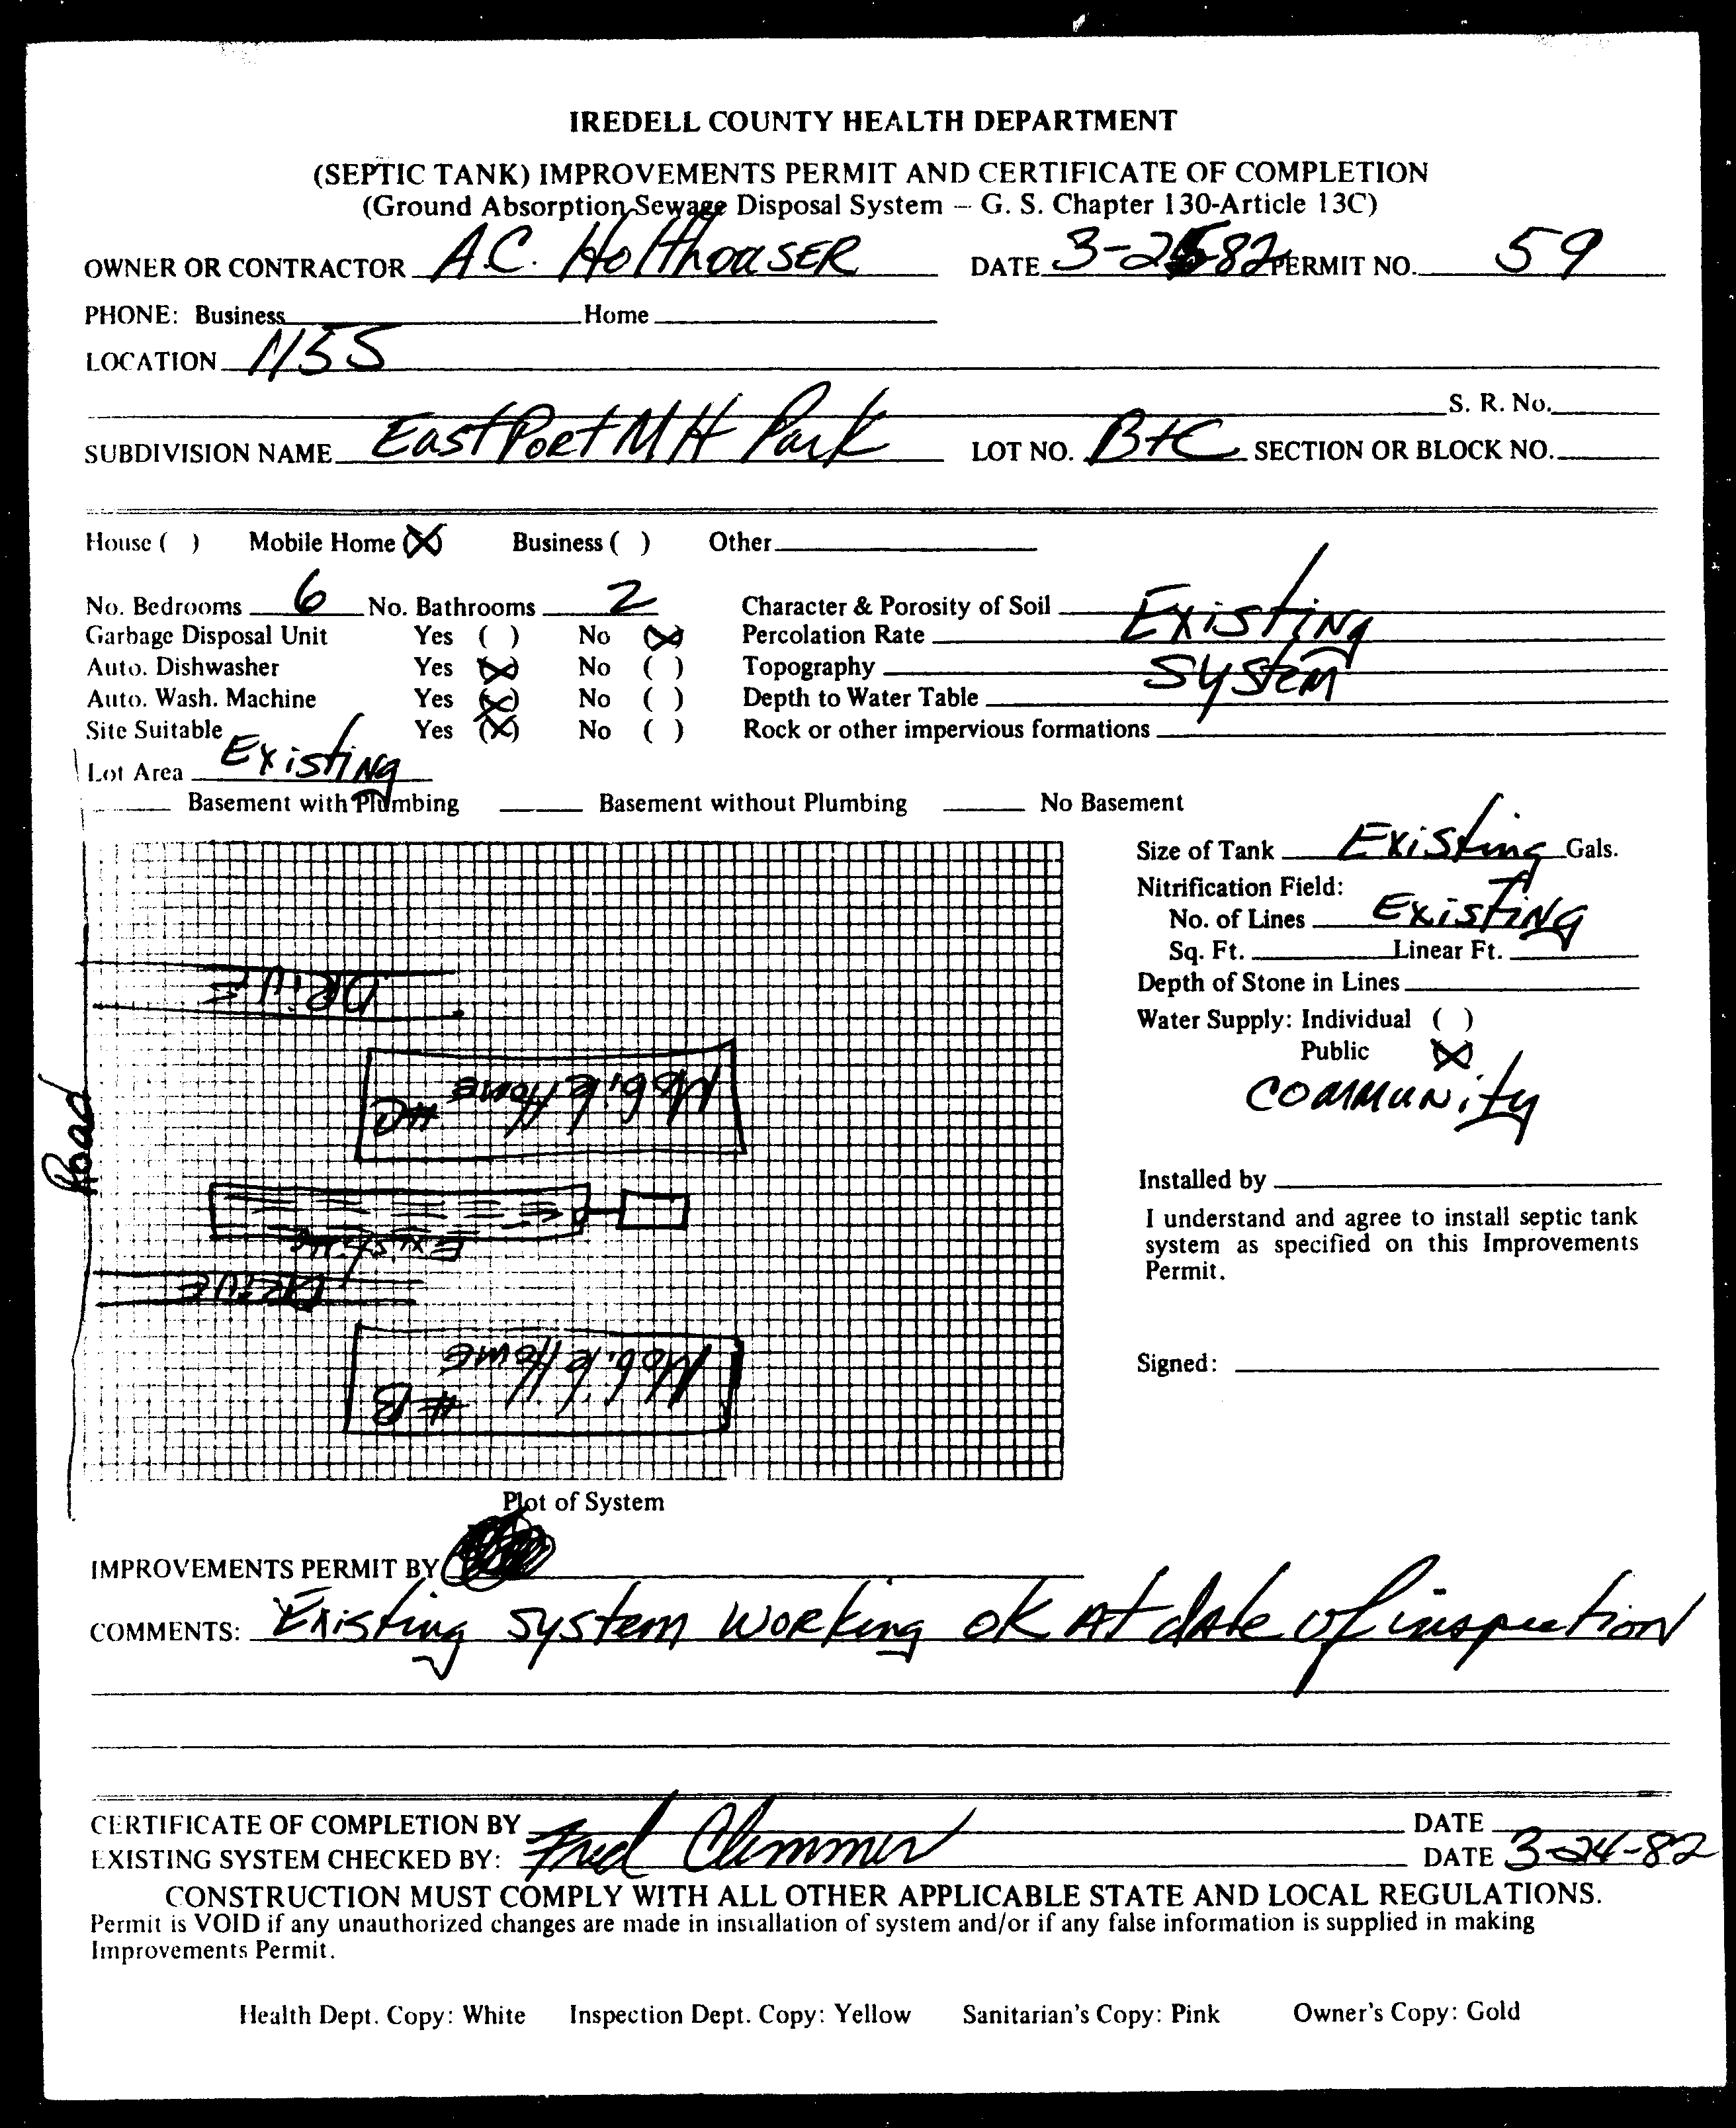 IREDELL COUNTY HEALTH DEPARTMENT
(SEPTIC TANK) IMPROVEMENTS PERMIT AND CERTIFICATE OF COMPLETION
(Ground Absorption Sewage Disposal System — G. S. Chapter 130-Article 13C)
OWNER OR CONTRACTOR A.C. Holthouser DATE 3-2 -82 PERMIT NO. 59
PHONE: Business Home
LOCATION
S. R. No.
SUBDIVISION NAME EastPort MH Park LOT NO. B+C SECTION OR BLOCK NO.
House ( ) Mobile Home (X) Business ( ) Other
No. Bedrooms 6 No. Bathrooms 2 Character & Porosity of Soil Existing
Garbage Disposal Unit Yes ( ) No (X) Percolation Rate
Auto. Dishwasher Yes (X) No ( ) Topography System
Auto. Wash. Machine Yes (X) No ( ) Depth to Water Table
Site Suitable Yes (X) No ( ) Rock or other impervious formations
Lot Area Existing
Basement with Plumbing Basement without Plumbing No Basement
Size of Tank Existing Gals.
Nitrification Field:
No. of Lines Existing
Sq. Ft. Linear Ft.
Depth of Stone in Lines
Water Supply: Individual ( )
Public (X)
Community
Installed by
I understand and agree to install septic tank
system as specified on this Improvements
Permit.
Signed:
Road
Drive
Mobile Home
#C
Existing
Drive
Mobile Home
#B
Plot of System
IMPROVEMENTS PERMIT BY
COMMENTS: Existing system working ok At date of inspection
CERTIFICATE OF COMPLETION BY DATE
EXISTING SYSTEM CHECKED BY: Fred Clemmer DATE 3-24-82
CONSTRUCTION MUST COMPLY WITH ALL OTHER APPLICABLE STATE AND LOCAL REGULATIONS.
Permit is VOID if any unauthorized changes are made in installation of system and/or if any false information is supplied in making
Improvements Permit.
Health Dept. Copy: White Inspection Dept. Copy: Yellow Sanitarian's Copy: Pink Owner's Copy: Gold